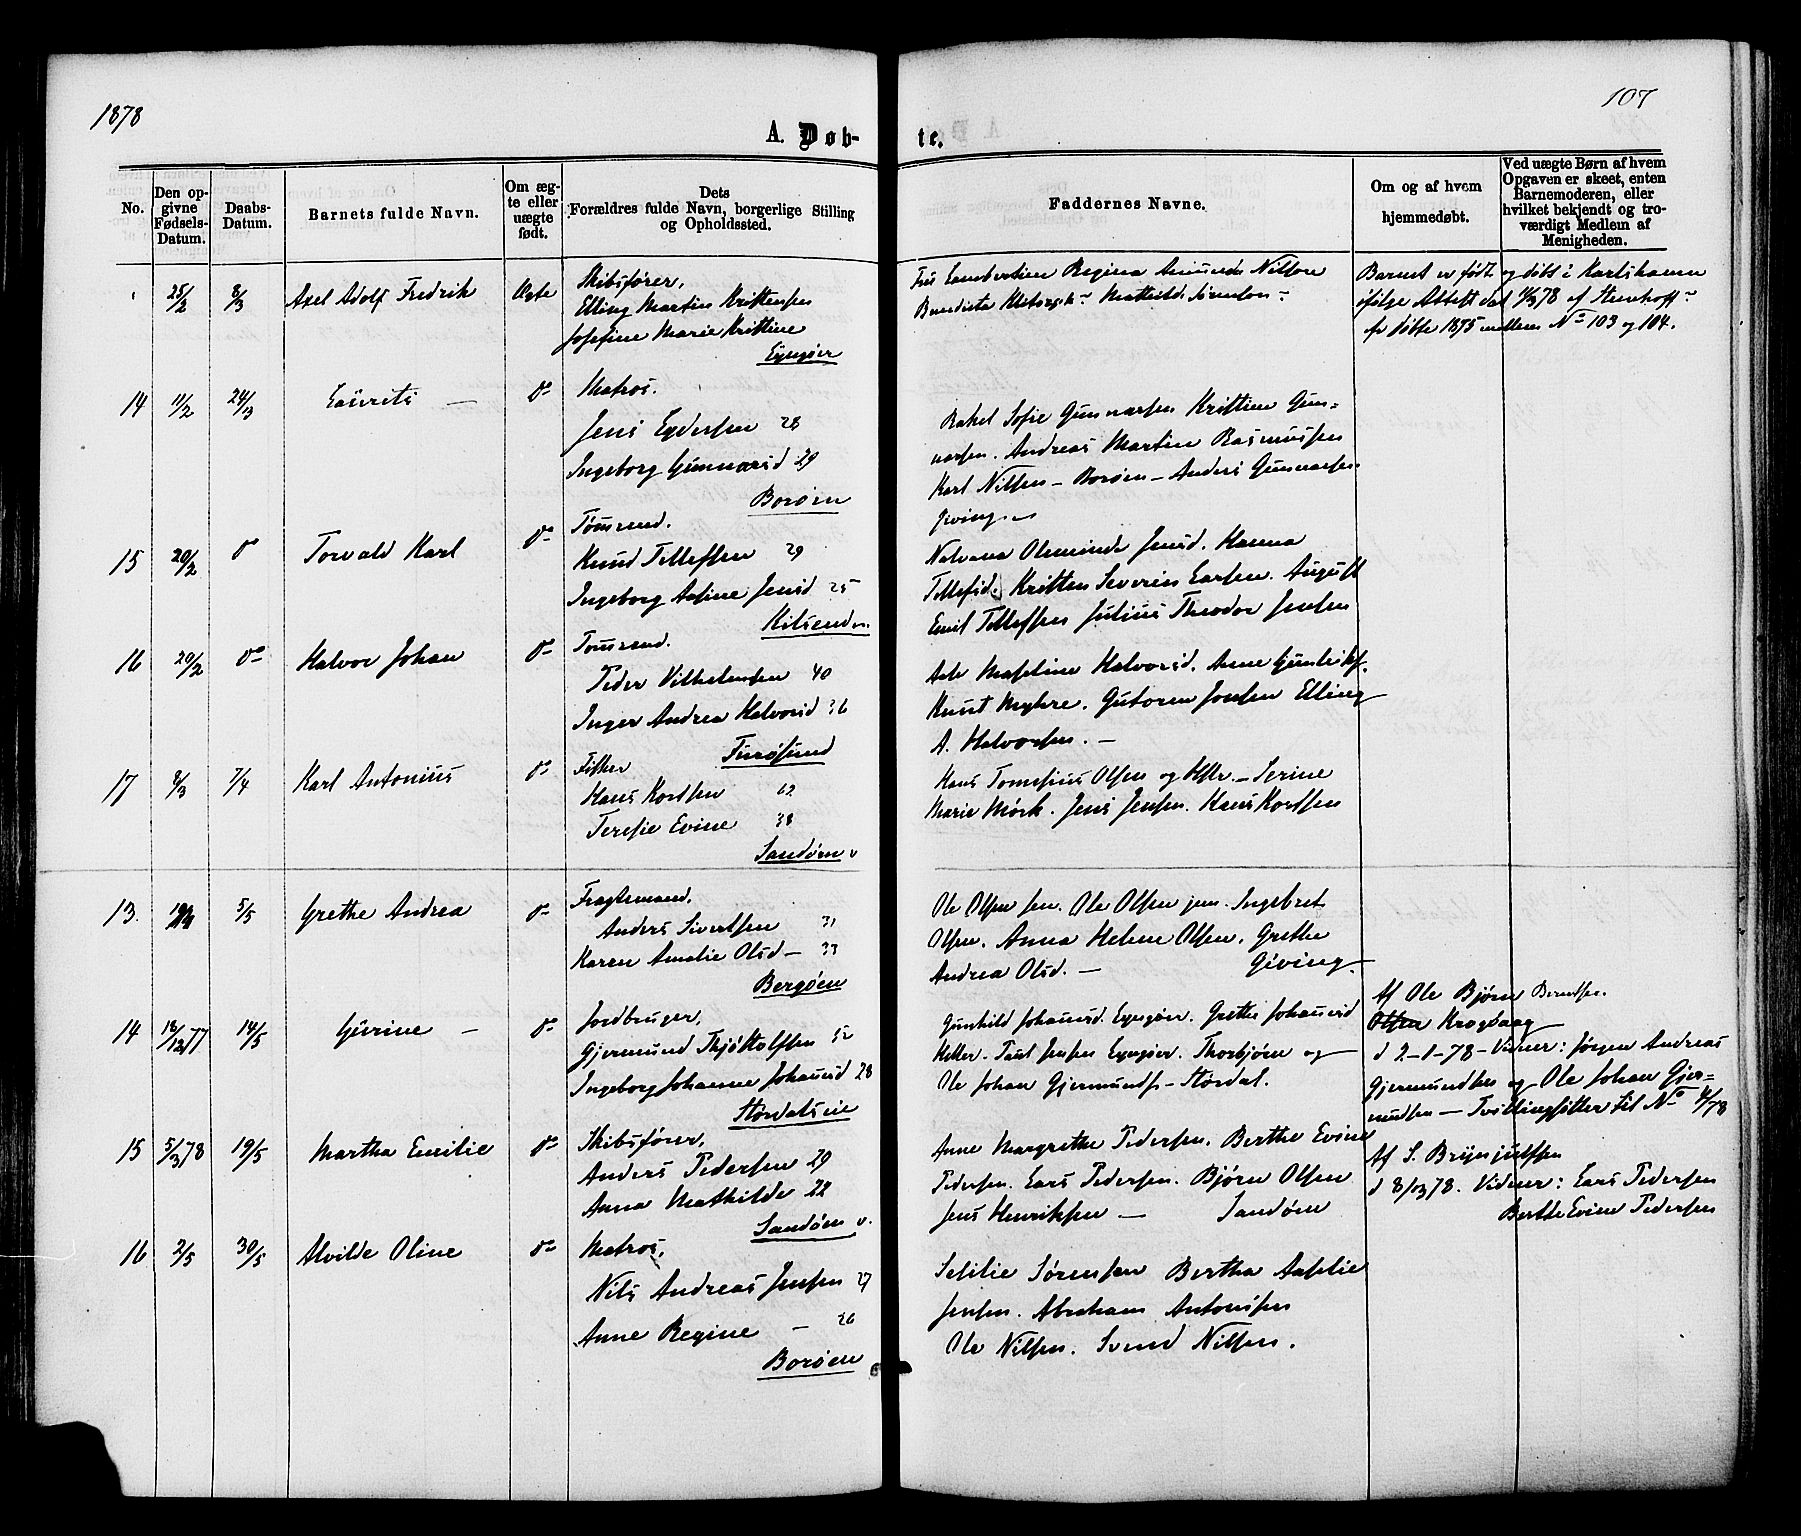 1878
107
A. Døb-
te.
No.
Den op-
givne
Fødsels-
Datum.
Daabs-
Datum.
Barnets fulde Navn.
Om æg-
te eller
uægte
født.
Dets
Forældres fulde Navn, borgerlige Stilling
og Opholdssted.
Faddernes Navne.
Om og af hvem
hjemmedøbt.
Ved uægte Børn af hvem
Opgaven er skeet, enten
Barnemoderen, eller
hvilket bekjendt og tro-
værdigt Medlem af
Menigheden.
25/2 8/3 Axel Adolf Fredrik Ægte
Skibsfører,
Elling Martin Kristensen
Josefine Marie Kristine
Lambertine Regina Amunds Nilson
Barnet er født og døbt i Karlshamn
ifølge Attest dat 11/3 78 af Steenhoff
døbte 1875 mellem No 103 og 104.
14 11/2 24/3 Laurits — do
Matros.
Jens Eydersen 28
Ingeborg Gunnarsd 29
Borøen
Rakel Sofie Gunnarsen Kristine Gun=
narsen. Andreas Martin Rasmussen
Karl Nilsen – Borøen – Anders Gunnarsen
Giving
15 20/2 do Torvald Karl do
Tømrmd.
Knud Tellefsen 29
Ingeborg Asine Jensd 25
Oleminde Jensd. Hanna
Tellefsd. Kristen Severin Larsen. August
Emil Tellefsen Julius Theodor Jensen
16 20/2 do Halvor Johan do
Tømrmd.
Peder Vilhelmsen 40
Inger Andrea Halvorsd 36
Furøsund
Halvorsd. Anne
Knut Myhre. Gutorm Jensen Elling
A. Halvorsen. —
17 8/3 7/4 Karl Antonius do
Fisker
Hans Kordsen 62
Teresie Evine 38
Sandøen v
Hans Tomesius Olsen og Hstr. – Serine
Marie Mörk. Jens Jensen. Hans Kordsen
13. 5/5 Grethe Andrea do
Fragtemand,
Anders Sivertsen 31
Karen Amalie Olsd – 33
Bergøen
Ole Olsen sen. Ole Olsen jun. Ingebret
Olsen. Anna Helene Olsen. Grethe
Andrea Olsd. — Giving —
14 18/12 77 14/5 Gurine — do
Jordbruger,
Gjermund Thjøstolfsen 52
Ingeborg Johanne Johansd 28
Størdalseie
Gunhild Johansd. Lyngør. Grethe Johansd
Keller. Paul Jensen Lyngør. Thorbjørn og
Ole Johan Gjermundss – Størdal.
Af Ole Bjørn Berntsen.
Olsen Krogvaag
d 2-1-78 – Vidner: Jørgen Andreas
Gjermundsen og Ole Johan Gjer=
mundsen — Tvillingsøster til No 4/78
15 5/3 78 19/5 Martha Emilie do
Skibsfører,
Anders Pedersen 29
Anna Mathilde 22
Sandøen v.
Anne Margrethe Pedersen. Berthe Evine
Pedersen. Lars Pedersen. Bjørn Olsen
Jens Henriksen — Sandøen
Af S. Brynjulfsen
d 8/3 78. Vidner: Lars Pedersen
Berthe Evine Pedersen
16 2/5 30/5 Alvilde Oline do
Matros,
Nils Andreas Jensen 27
Anne Regine — 26
Borøen
Sesilie Sørensen Bertha Aaselie
Jensen. Abraham Antonsen
Ole Nilsen. Svend Nilsen.